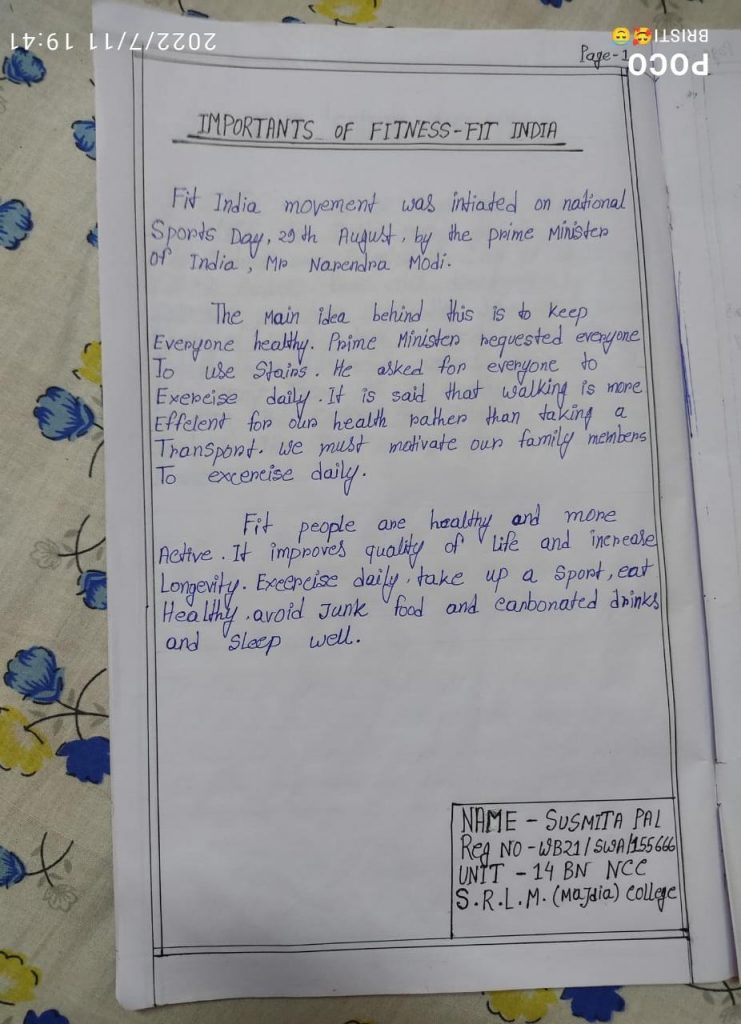 2022/7/11 19:41
POCO
BRISTI
Page-1
IMPORTANTS OF FITNESS-FIT INDIA
Fit India movement was intiated on national
Sports Day, 29th August, by the prime Minister
of India, Mr Narendra Modi.
The Main idea behind this is to keep
Everyone healthy. Prime Minister requested everyone
To use Stairs. He asked for everyone to
Exercise daily. It is said that walking is more
Effeient for our health rather than taking a
Transport. We must motivate our family members
To excercise daily.
Fit people are healthy and more
Active. It improves quality of life and increase
Longevity. Excercise daily, take up a Sport, eat
Healthy, avoid Junk food and carbonated drinks
and Sleep well.
NAME - SUSMITA PAL
Reg NO - WB21/SWA/155666
UNIT - 14 BN NCC
S.R.L.M. (Majdia) College